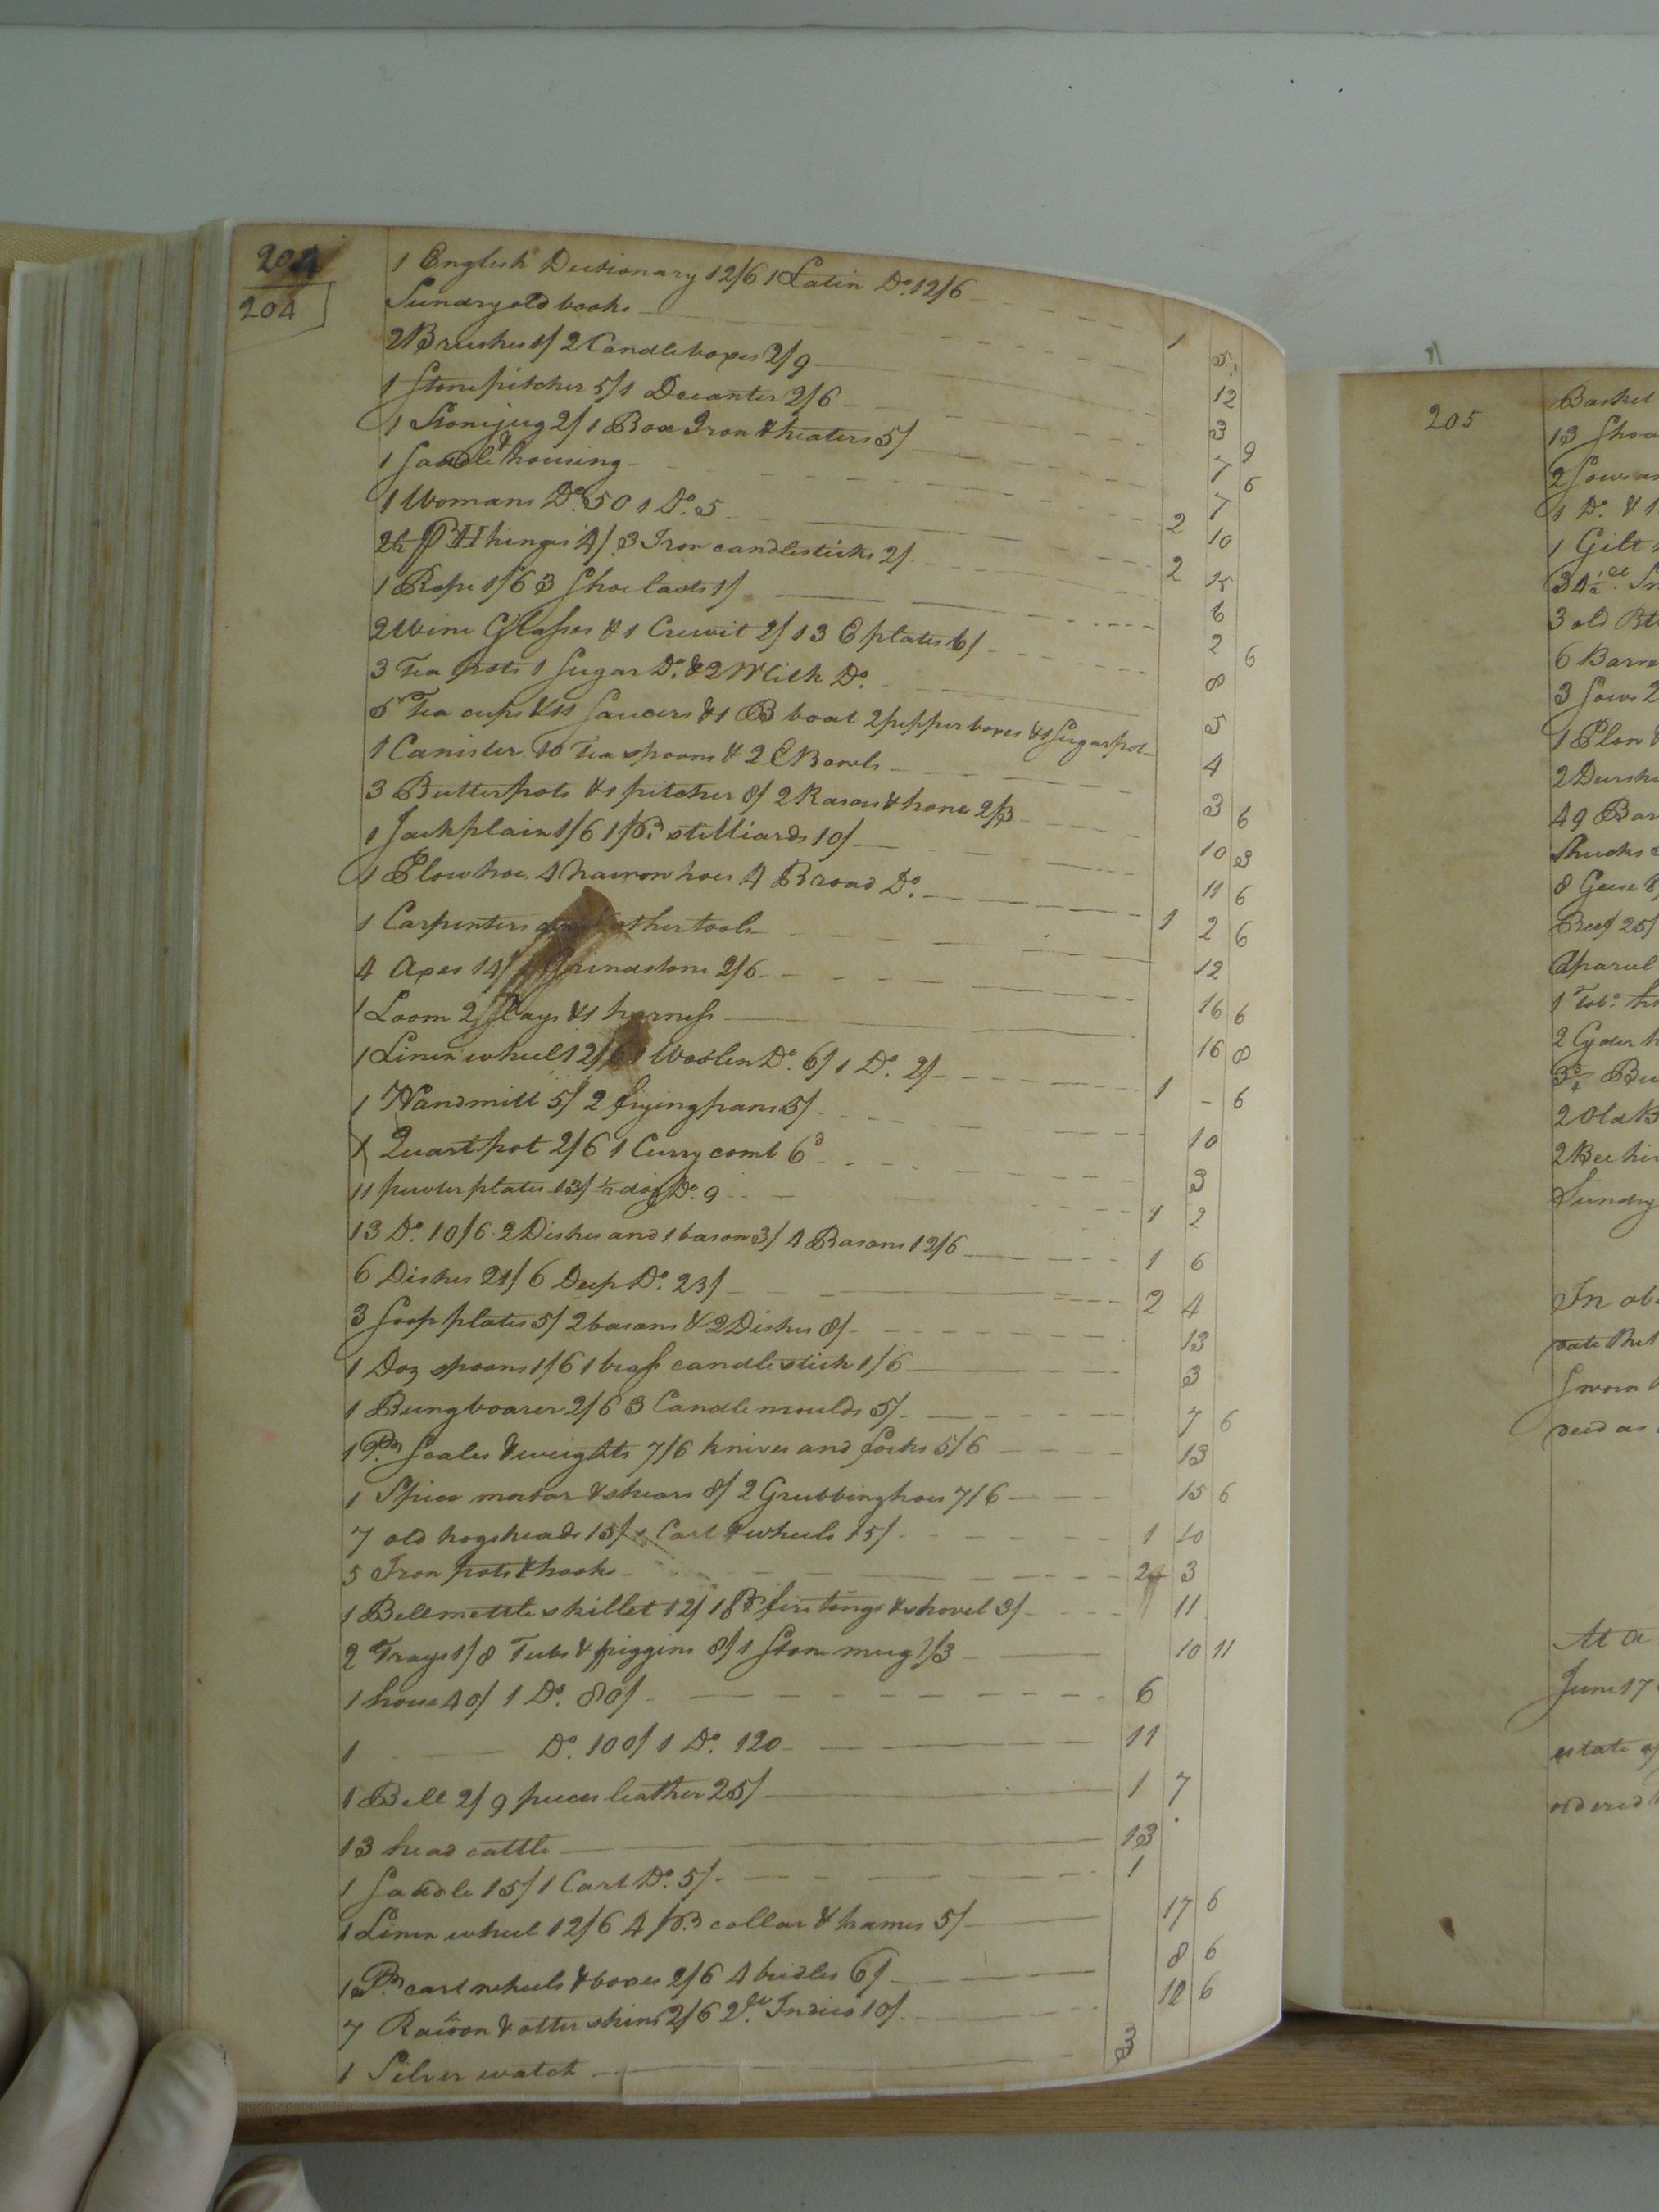 204
204
1 English Dictionary 12/6 1 Latin Do. 12/6 1 5
Sundry old books 12
2 Brushes 1/ 2 Candle boxes 2/9 3 9
1 Stone pitcher 5/ 1 Decanter 2/6 7 6
1 Stone jug 2/ 1 Box Iron & heaters 5/ 7
1 Saddle & housing 2 10
1 Womans Do. 50 1 Do. 5 2 15
2 pr H hinges 4/ 3 Iron candlesticks 2/ 6
1 Rope 1/6 3 Shoe lasts 1/ 2 6
2 Wine Glasses & 1 Crewit 2/ 13 E plates 6/ 8
3 Tea pots 1 Sugar Do. & 2 Milk Do. 5
6 Tea cups & 11 Saucers & 1 B boat 2 pepper boxes & 1 Sugar pot 4
1 Canister 10 Tea spoons & 2 E Bowls 3 6
3 Butter pots & 1 pitcher 8/ 2 Rasors & hone 2/3 10 3
1 Jack plain 1/6 1 pr. stilliards 10/ 11 6
1 Plow hoe 4 narrow hoes 4 Broad Do. 1 2 6
1 Carpenters other tools 12
4 Axes 14/ Grindstone 2/6 16 6
1 Loom 2 Slays & 1 harness 16 8
1 Linen wheel 12/6 1 Woolen Do. 6/ 1 Do. 2/ 1 - 6
1 Handmill 5/ 2 frying pans 5/ 10
1 Quart pot 2/6 1 Curry comb 6d 3
11 pewter plates 13/ 1/2 doz Do. 9 1 2
13 Do. 10/6 2 Dishes and 1 bason 3/ 4 Basons 12/6 1 6
6 Dishes 21/ 6 Deep Do. 23/ 2 4
3 Soop plates 5/ 2 basons & 2 Dishes 8/ 13
1 Doz spoons 1/6 1 brass candlestick 1/6 3
1 Bung boarer 2/6 3 Candle moulds 5/ 7 6
1 Pr. Scales & weights 7/6 knives and forks 5/6 13
1 Spice mortar & shears 8/ 2 Grubbing hoes 7/6 15 6
7 old hogsheads 15/ 1 Cart & wheels 15/ 1 10
5 Iron pots & hooks 2 3
1 Bellmettle skillet 12/ 1 Pr fire tongs & shovel 3/ 11
2 Trays 1/8 Tubs & piggins 8/ 1 Stone mug 1/3 10 11
1 horse 40/ 1 Do. 80/ 6
1 Do. 100/ 1 Do. 120 11
1 Bell 2/ 9 pieces leather 25/ 1 7
13 head cattle 13
1 Saddle 15/ 1 Cart Do. 5/ 1
1 Linen wheel 12/6 4 pr. collar & hames 5/ 17 6
1 Pr. cart wheels & boxes 2/6 4 bridles 6/ 8 6
7 Racoon & otter skins 2/6 2 Indico 10/ 12 6
1 Silver watch 3
205
Basket
13 Shoa
2 Sows an
1 Do. & 1
1 Gilt
3 old
6 Barre
3 Sows 2
1 Plow &
49 Bar
8 Geese
Beef 25/
2 Cyder
2 Old B
2 Bee hi
Sundry
In ob
Sworn
At a
June 17
estate of
ordered